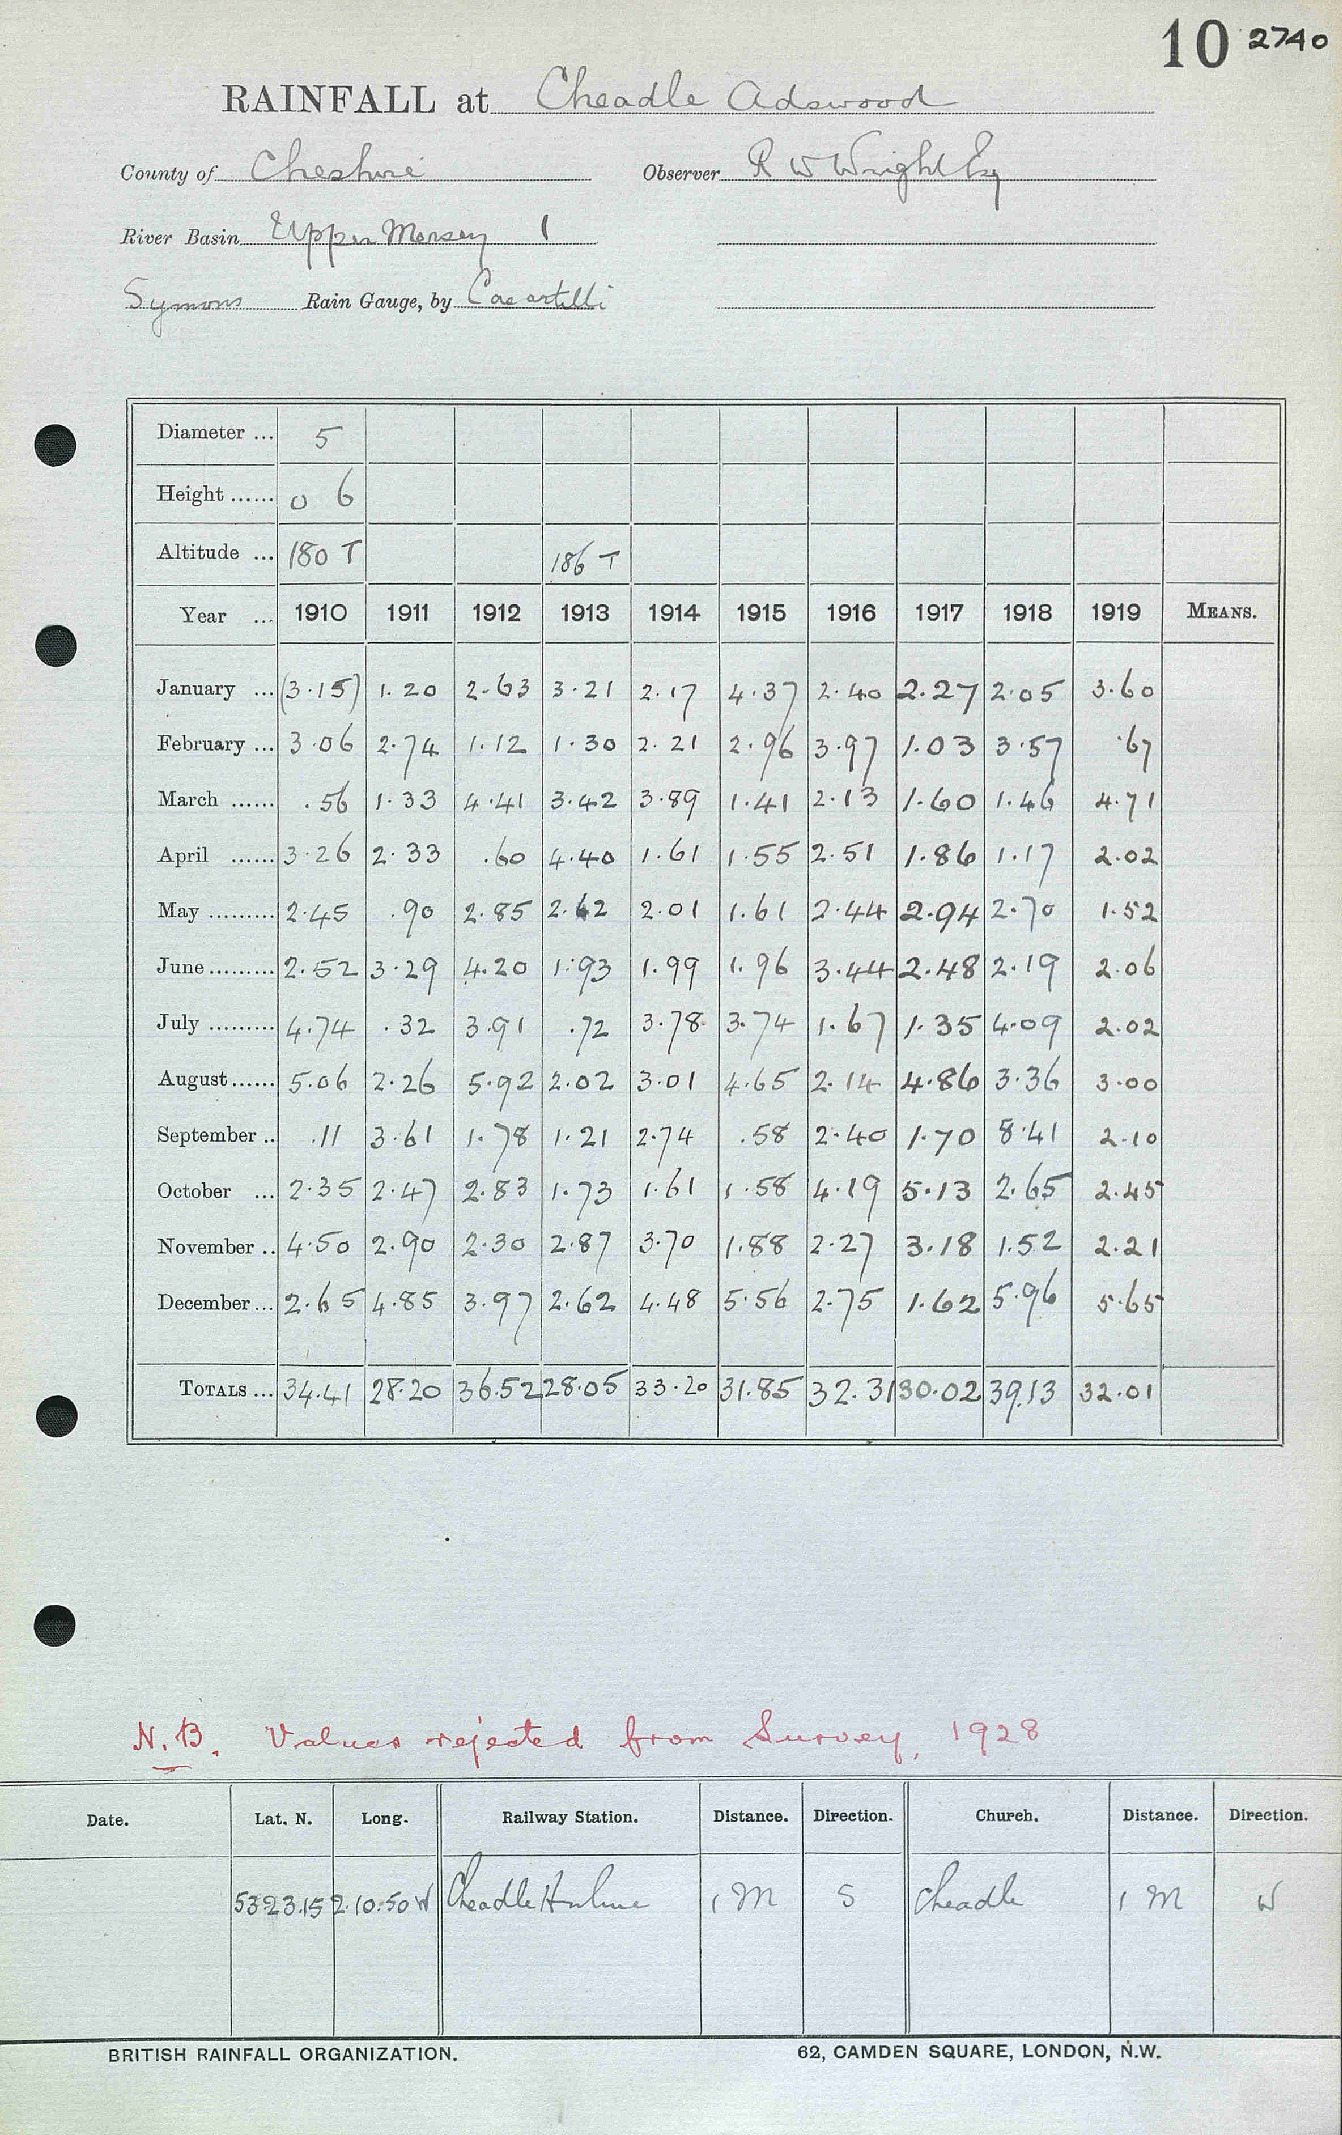 10 2740
RAINFALL at Cheadle Adswood
County of Cheshire Observer R W Wright Esq
River Basin Upper Mersey 1
Symons Rain Gauge, by Casartelli
Diameter ... 5
Height ...... 0 6
Altitude ... 180 T 186 T
Year ... 1910 1911 1912 1913 1914 1915 1916 1917 1918 1919 MEANS.
January ... (3.15) 1.20 2.63 3.21 2.17 4.37 2.40 2.27 2.05 3.60
February ... 3.06 2.74 1.12 1.30 2.21 2.96 3.97 1.03 3.57 .67
March ...... .56 1.33 4.41 3.42 3.89 1.41 2.13 1.60 1.46 4.71
April ...... 3.26 2.33 .60 4.40 1.61 1.55 2.51 1.86 1.17 2.02
May ......... 2.45 .90 2.85 2.62 2.01 1.61 2.44 2.94 2.70 1.52
June ......... 2.52 3.29 4.20 1.93 1.99 1.96 3.44 2.48 2.19 2.06
July ......... 4.74 .32 3.91 .72 3.78 3.74 1.67 1.35 4.09 2.02
August ...... 5.06 2.26 5.92 2.02 3.01 4.65 2.14 4.86 3.36 3.00
September .. .11 3.61 1.78 1.21 2.74 .58 2.40 1.70 8.41 2.10
October ... 2.35 2.47 2.83 1.73 1.61 1.58 4.19 5.13 2.65 2.45
November .. 4.50 2.90 2.30 2.87 3.70 1.88 2.27 3.18 1.52 2.21
December ... 2.65 4.85 3.97 2.62 4.48 5.56 2.75 1.62 5.96 5.65
TOTALS ... 34.41 28.20 36.52 28.05 33.20 31.85 32.31 30.02 39.13 32.01
N.B. Values rejected from Survey, 1928
Date. Lat. N. Long. Railway Station. Distance. Direction. Church. Distance. Direction.
53.23.15 2.10.50 W Cheadle Hulme 1 M S Cheadle 1 M W
BRITISH RAINFALL ORGANIZATION. 62, CAMDEN SQUARE, LONDON, N.W.